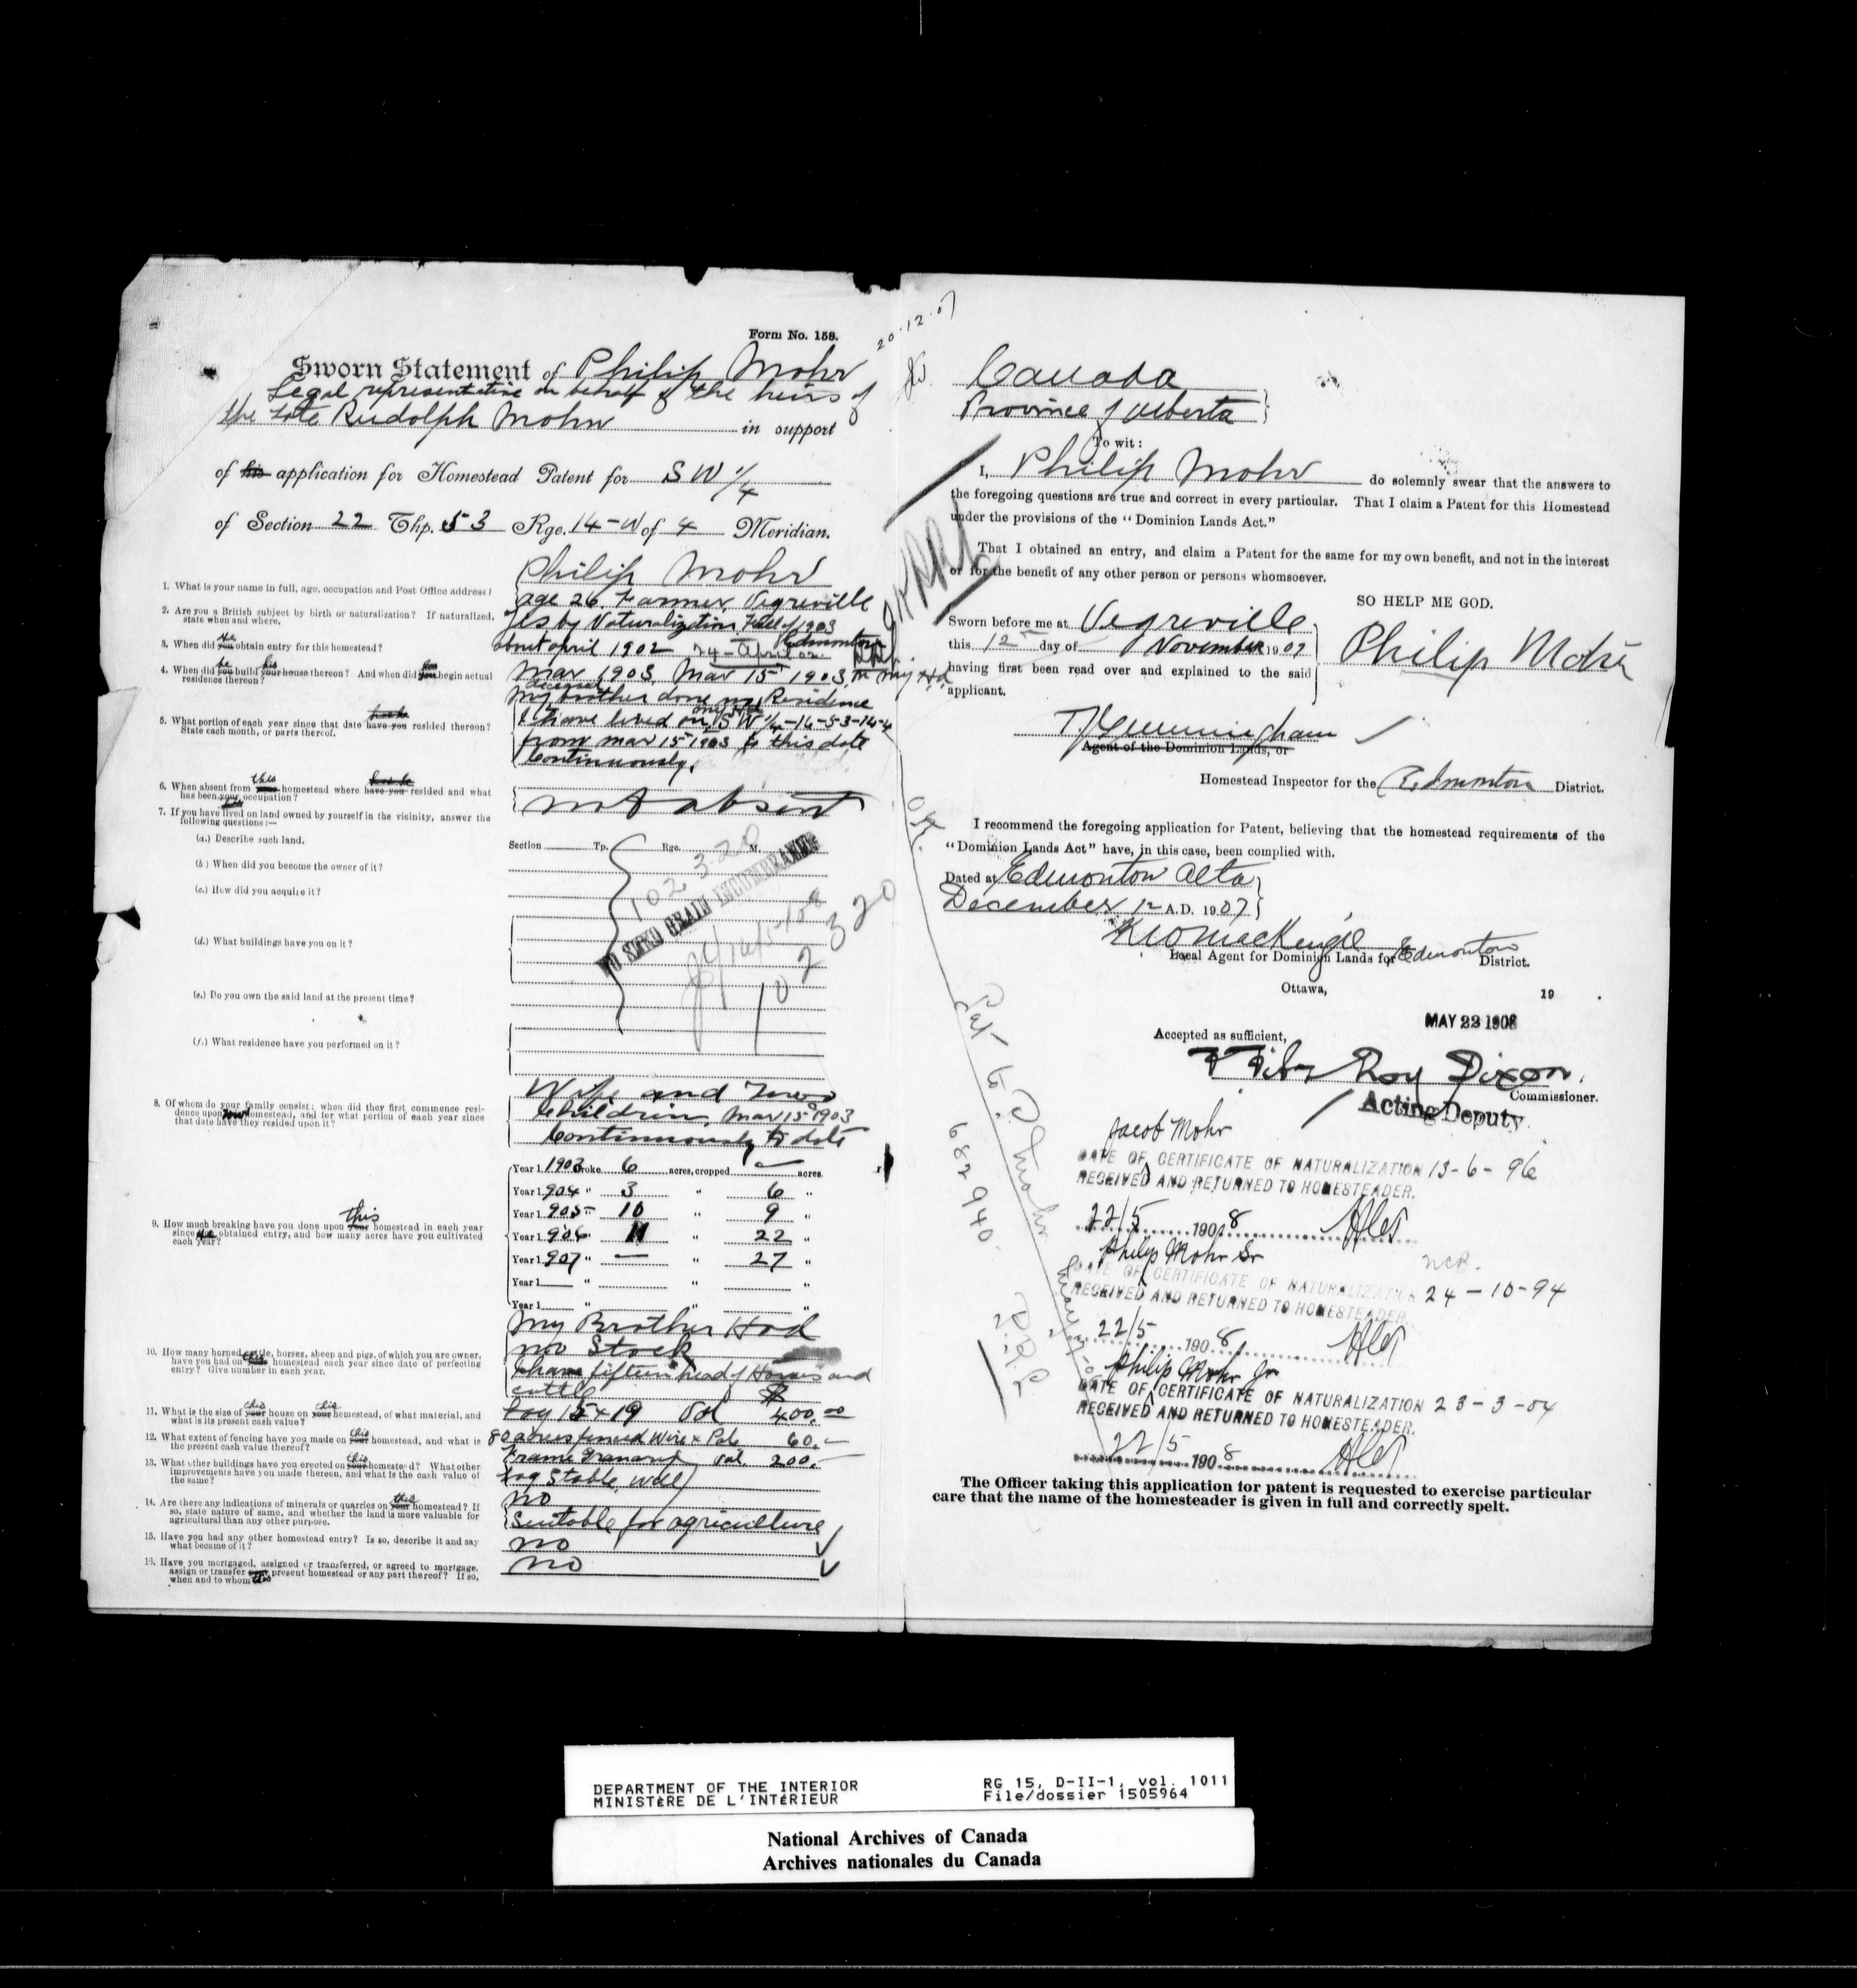 Form No. 158.
Sworn Statement of Philip Mohr
Legal representative on behalf of the heirs of
the late Rudolph Mohr in support
of his application for Homestead Patent for S W 1/4
of Section 22 Thp. 53 Rge. 14-W of 4 Meridian.
1. What is your name in full, age, occupation and Post Office address?
Philip Mohr
age 26, Farmer, Vegreville
2. Are you a British subject by birth or naturalization? If naturalized, state when and where.
Yes by Naturalization Fall of 1903
Edmonton
3. When did you he obtain entry for this homestead?
about april 1902 24-April 02.
4. When did you he build your his house thereon? And when did you begin actual residence thereon?
Mar 1903, Mar 15 1903, on my Hd
5. What portion of each year since that date have you resided thereon? State each month, or parts thereof.
My deceased brother done my Residence
I have lived on my Hd S W 1/4-14-53-14-4
from mar 15 1903 to this date
Continuously.
6. When absent from this homestead where have you resided and what has been your occupation?
not absent
7. If you have lived on land owned by yourself in the vicinity, answer the following questions:—
(a.) Describe such land.
Section Tp. Rge. M.
(b.) When did you become the owner of it?
(c.) How did you acquire it?
(d.) What buildings have you on it?
(e.) Do you own the said land at the present time?
(f.) What residence have you performed on it?
102320
NO SEED GRAIN INCUMBRANCE
102320
8. Of whom do your family consist; when did they first commence residence upon your homestead, and for what portion of each year since that date have they resided upon it?
Wife and Two
Children, Mar 15 1903
Continuously to date
9. How much breaking have you done upon your this homestead in each year since he obtained entry, and how many acres have you cultivated each year?
Year 1903 broke 6 acres, cropped — acres.
Year 1904 " 3 " 6 "
Year 1905 " 10 " 9 "
Year 1906 " 11 " 22 "
Year 1907 " — " 27 "
Year 1 " " "
Year 1 " " "
10. How many horned cattle, horses, sheep and pigs, of which you are owner, have you had on this homestead each year since date of perfecting entry? Give number in each year.
My Brother Had
no Stock
I have fifteen head of Horses and
cattle
11. What is the size of your this house on your this homestead, of what material, and what is its present cash value?
Log 15 x 19 Val $400.00
12. What extent of fencing have you made on your this homestead, and what is the present cash value thereof?
80 acres fenced Wire & Pole 60.—
13. What other buildings have you erected on your this homestead? What other improvements have you made thereon, and what is the cash value of the same?
Frame Granary Val. 200.—
Log Stable, well
14. Are there any indications of minerals or quarries on your this homestead? If so, state nature of same, and whether the land is more valuable for agricultural than any other purpose.
no
Suitable for agriculture
15. Have you had any other homestead entry? Is so, describe it and say what became of it?
no
16. Have you mortgaged, assigned or transferred, or agreed to mortgage, assign or transfer your present homestead or any part thereof? If so, when and to whom
no
20-12-07
Canada
Province of Alberta
To wit:
I, Philip Mohr do solemnly swear that the answers to
the foregoing questions are true and correct in every particular. That I claim a Patent for this Homestead
under the provisions of the "Dominion Lands Act."
That I obtained an entry, and claim a Patent for the same for my own benefit, and not in the interest
or for the benefit of any other person or persons whomsoever.
SO HELP ME GOD.
Sworn before me at Vegreville
this 12 day of November 1907
having first been read over and explained to the said
applicant.
Philip Mohr
Agent of the Dominion Lands, or
Homestead Inspector for the Edmonton District.
I recommend the foregoing application for Patent, believing that the homestead requirements of the
"Dominion Lands Act" have, in this case, been complied with.
Dated at Edmonton Alta
December 12 A.D. 1907
K W MacKenzie
Local Agent for Dominion Lands for Edmonton District.
Ottawa, 19 .
MAY 22 1908
Accepted as sufficient,
Roy Dixon.
Commissioner.
Acting Deputy.
OK.
682940.
Jacob Mohr
DATE OF CERTIFICATE OF NATURALIZATION 13-6-96
RECEIVED AND RETURNED TO HOMESTEADER.
22/5 1908
Philip Mohr Sr
NCR.
DATE OF CERTIFICATE OF NATURALIZATION 24-10-94
RECEIVED AND RETURNED TO HOMESTEADER.
22/5 1908
Philip Mohr Jr
DATE OF CERTIFICATE OF NATURALIZATION 23-3-04
RECEIVED AND RETURNED TO HOMESTEADER.
22/5 1908
The Officer taking this application for patent is requested to exercise particular
care that the name of the homesteader is given in full and correctly spelt.
DEPARTMENT OF THE INTERIOR
MINISTÈRE DE L'INTÉRIEUR
RG 15, D-II-1, vol. 1011
File/dossier 1505964
National Archives of Canada
Archives nationales du Canada